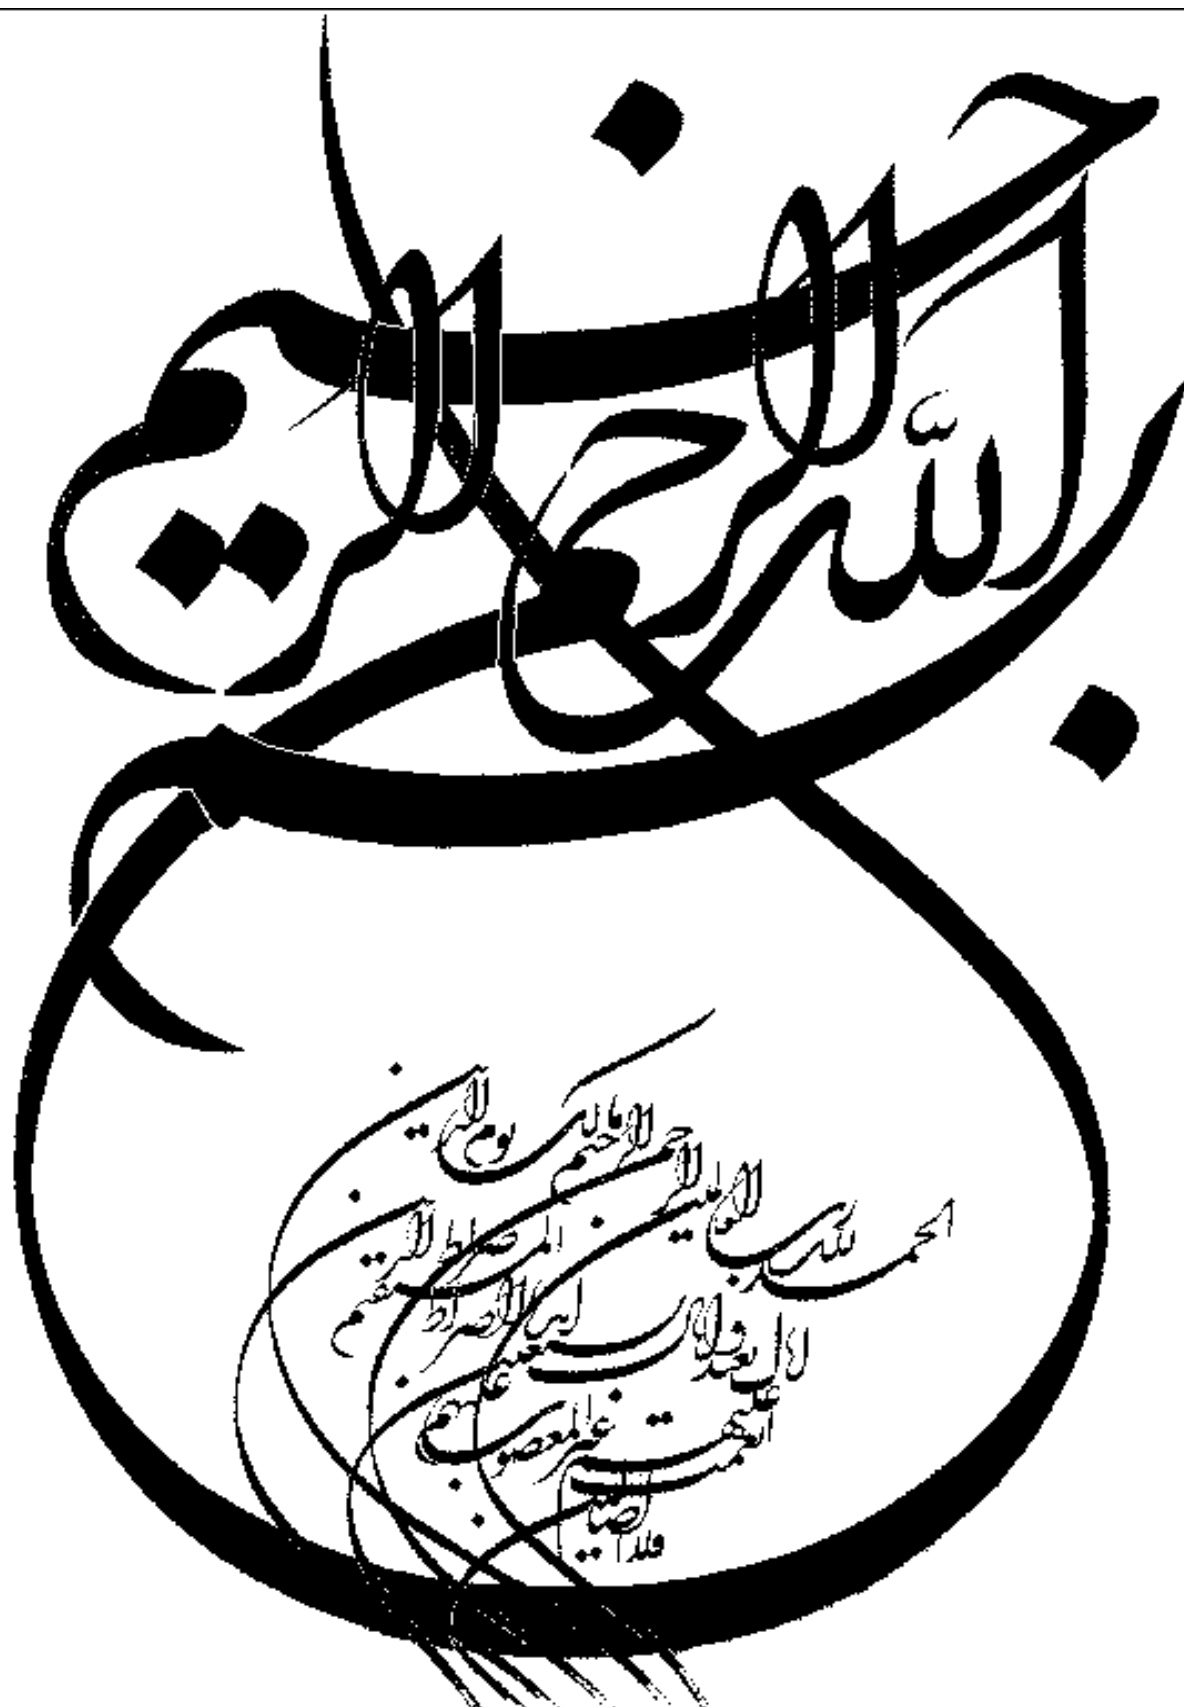 بسم الله الرحمن الرحیم
الحمد لله رب العالمین
الرحمن الرحیم مالک یوم الدین
ایاک نعبد و ایاک نستعین
اهدنا الصراط المستقیم صراط الذین
انعمت علیهم غیر المغضوب علیهم
ولا الضالین